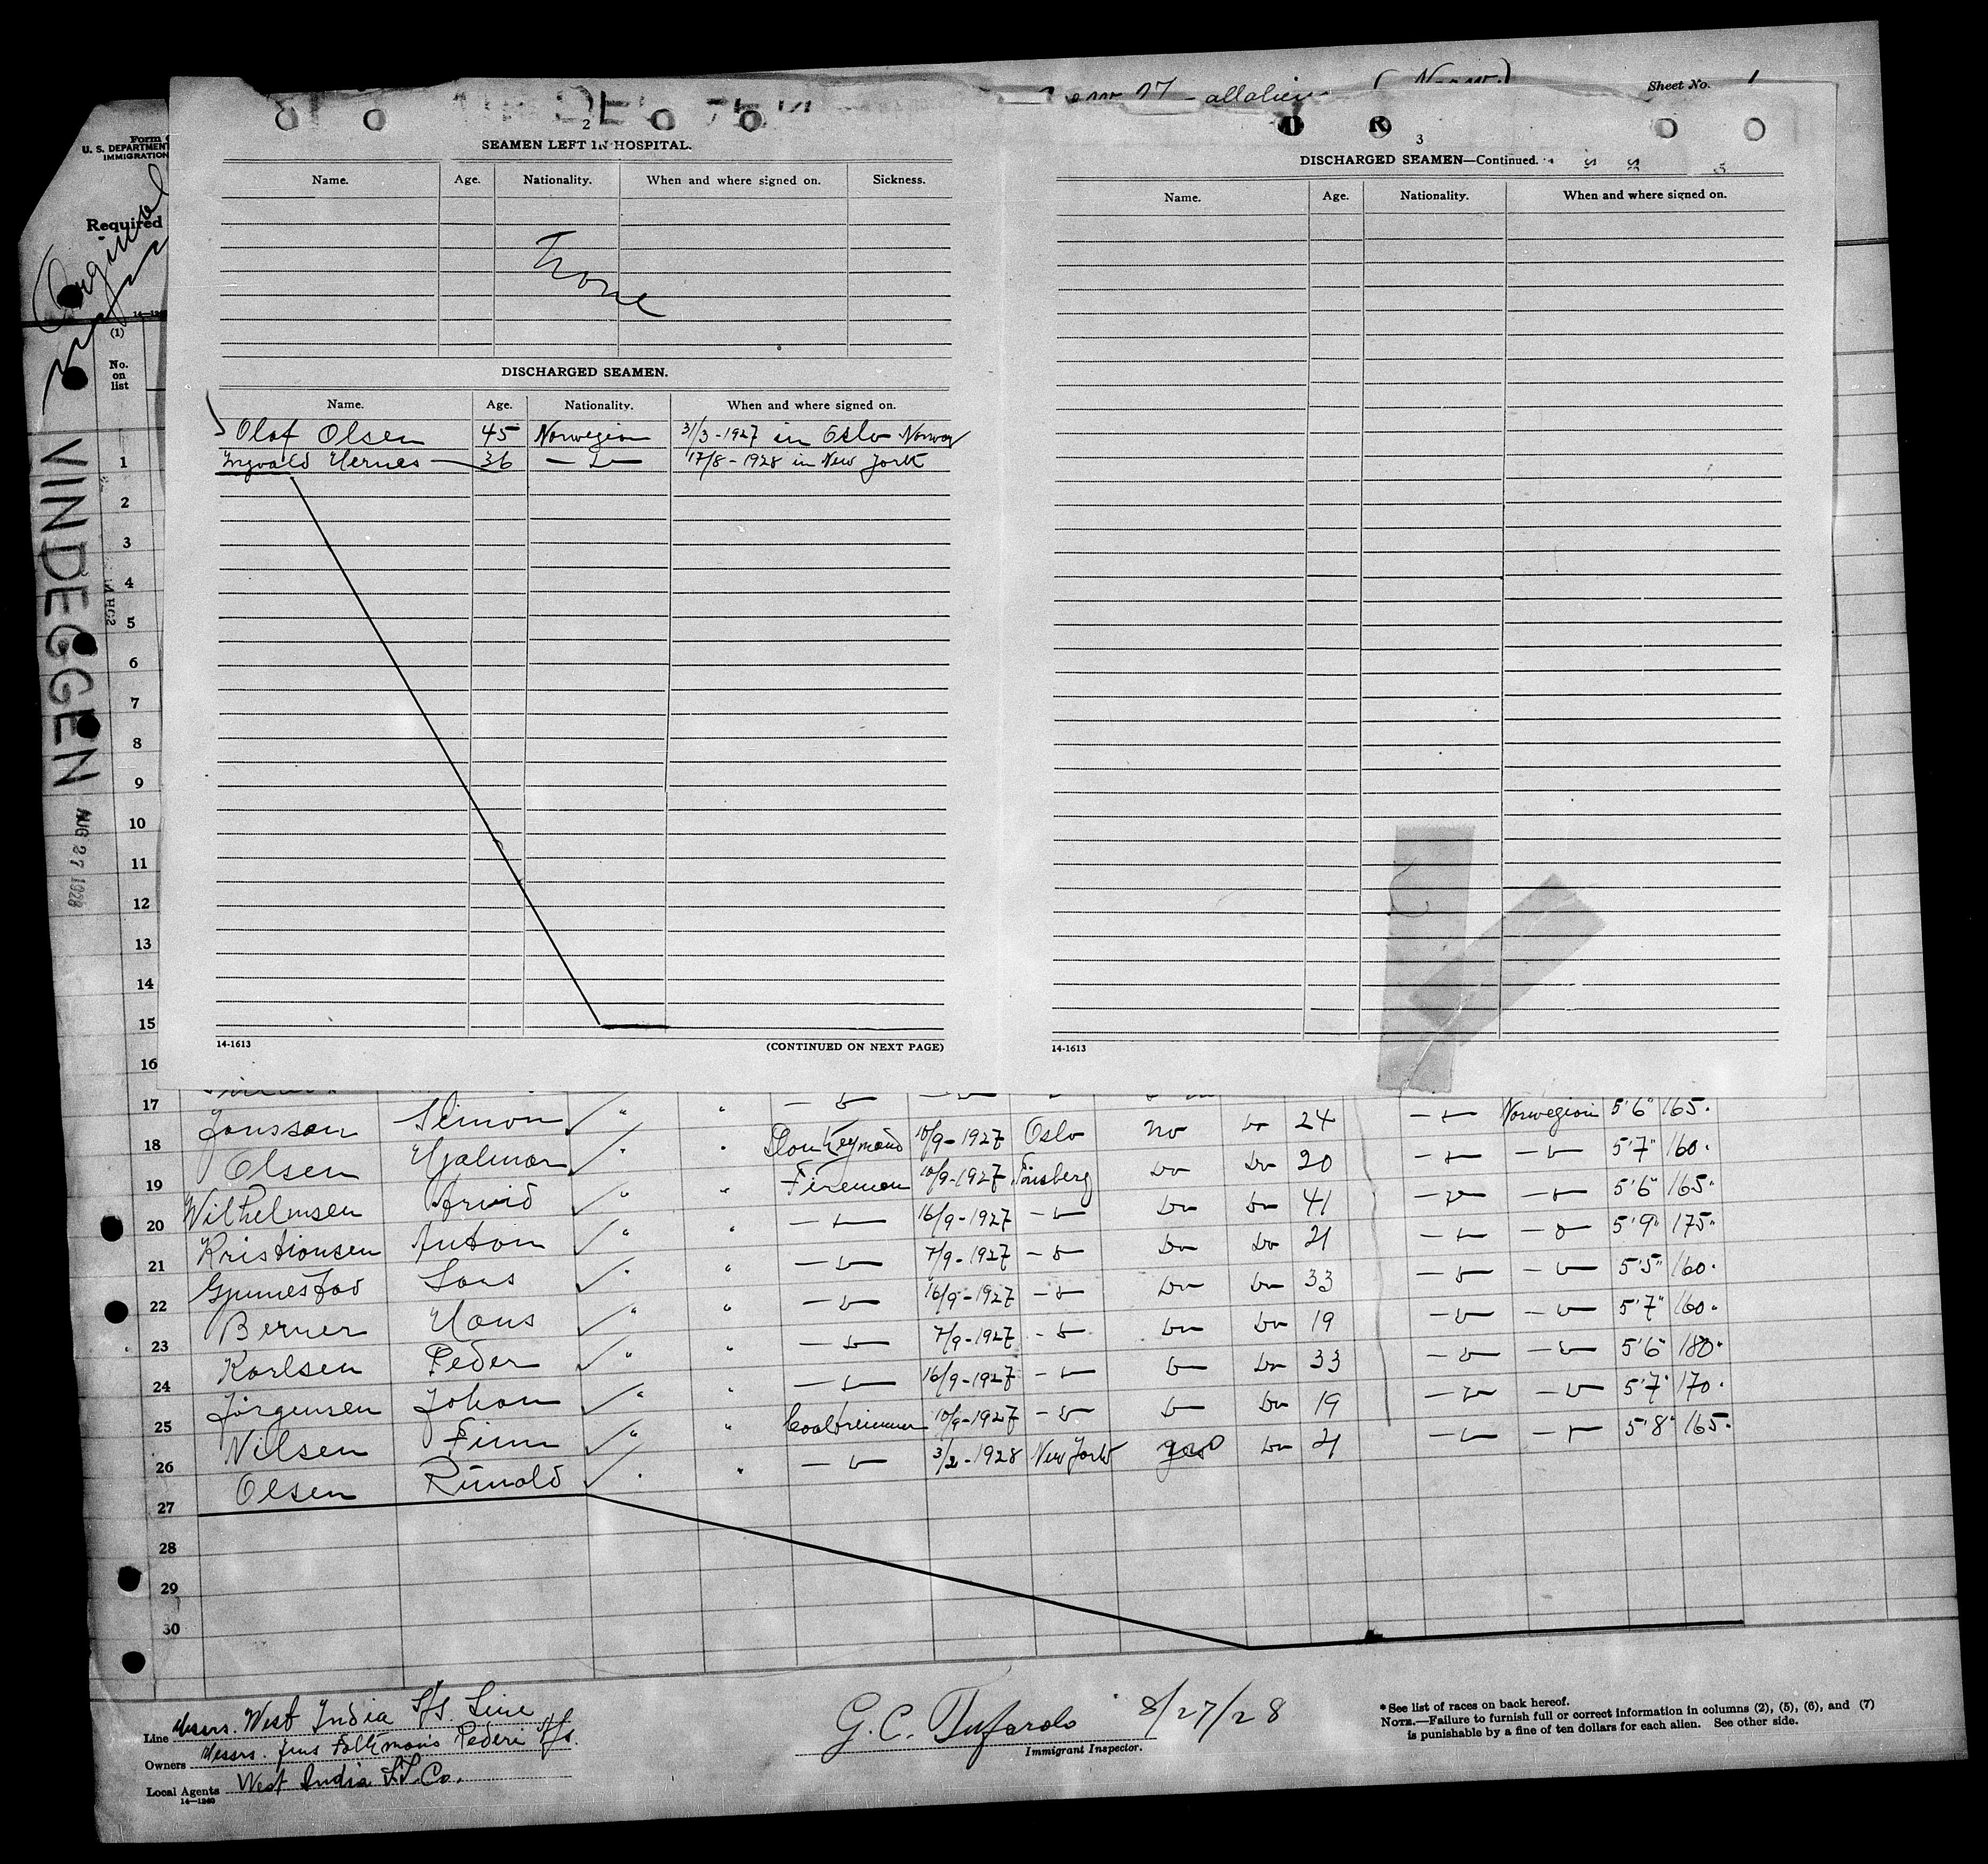 Sheet No. 1
Form
U. S. DEPARTMENT
IMMIGRATION
Required
Original
14—12
(1)
No.
on
list
VINDEGGEN
AUG 27 1928
2
SEAMEN LEFT IN HOSPITAL.
Name. Age. Nationality. When and where signed on. Sickness.
None
DISCHARGED SEAMEN.
Name. Age. Nationality. When and where signed on.
Olaf Olsen 45 Norwegian 31/3-1927 in Oslo Norway
Ingvald Hernes 36 17/8-1928 in New York
14-1613 (CONTINUED ON NEXT PAGE)
3
DISCHARGED SEAMEN—Continued.
Name. Age. Nationality. When and where signed on.
14-1613
1
2
3
4
5
6
7
8
9
10
11
12
13
14
15
16
17 Jonsson Simon ✓ " " Norwegian 5'6" 165.
18 Olsen Hjalmar ✓ " " Donkeymand 10/9-1927 Oslo No Do 24 5'7" 160.
19 Wilhelmsen Arvid ✓ " " Firemen 10/9-1927 Tönsberg Do Do 20 5'6" 165.
20 Kristiansen Anton ✓ " " 16/9-1927 Do Do 41 5'9" 175.
21 Lars ✓ " " 7/9-1927 Do Do 21 5'5" 160.
22 Berner Hans ✓ " " 16/9-1927 Do Do 33 5'7" 160.
23 Karlsen Peder ✓ " " 7/9-1927 Do Do 19 5'6" 180.
24 Jörgensen Johan ✓ " " 16/9-1927 Do 33 5'7" 170.
25 Nilsen Finn ✓ " " 10/9-1927 Do 19 5'8" 165.
26 Olsen Runold ✓ " " 3/2-1928 New York yes Do 21
27
28
29
30
Line Messrs. West India S/S. Line
Owners Messrs. Rederi A/S.
Local Agents West India S.S. Co.
14—1240
G. C. Tufarolo 8/27/28
Immigrant Inspector.
* See list of races on back hereof.
NOTE.—Failure to furnish full or correct information in columns (2), (5), (6), and (7)
is punishable by a fine of ten dollars for each alien. See other side.